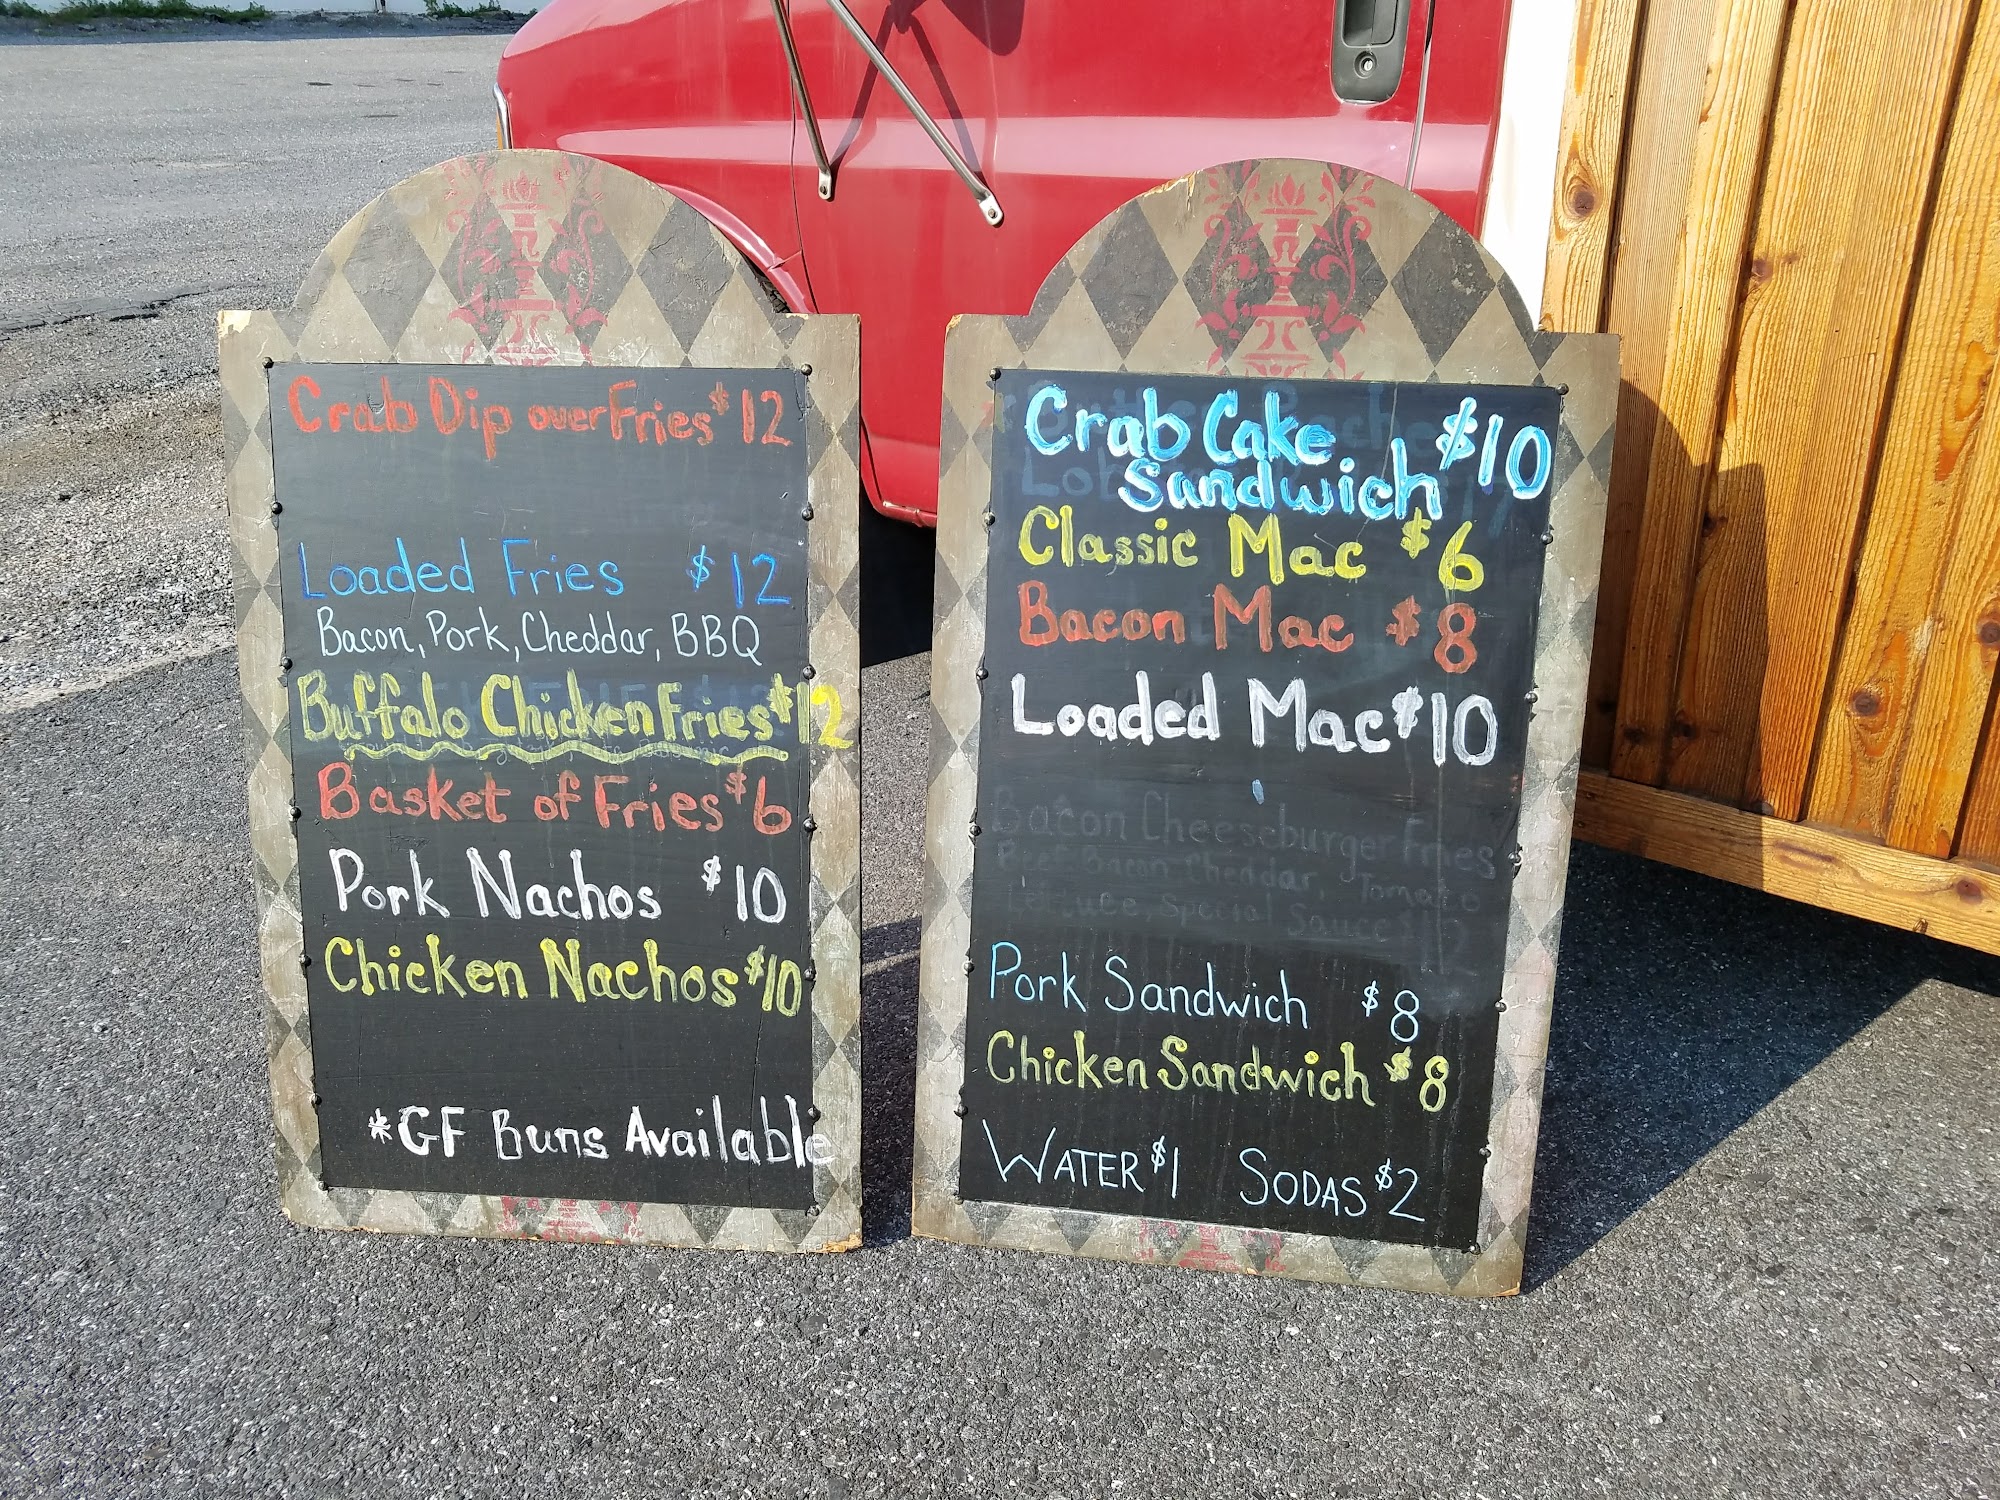 Crab Dip over Fries $12
Loaded Fries $12
Bacon, Pork, Cheddar, BBQ
Buffalo Chicken Fries $12
Basket of Fries $6
Pork Nachos $10
Chicken Nachos $10
*GF Buns Available
Crab Cake $10
Sandwich
Classic Mac $6
Bacon Mac $8
Loaded Mac $10
Bacon Cheeseburger Fries
Beef Bacon Cheddar Tomato
Lettuce, Special Sauce $12
Pork Sandwich $8
Chicken Sandwich $8
WATER $1 SODAS $2